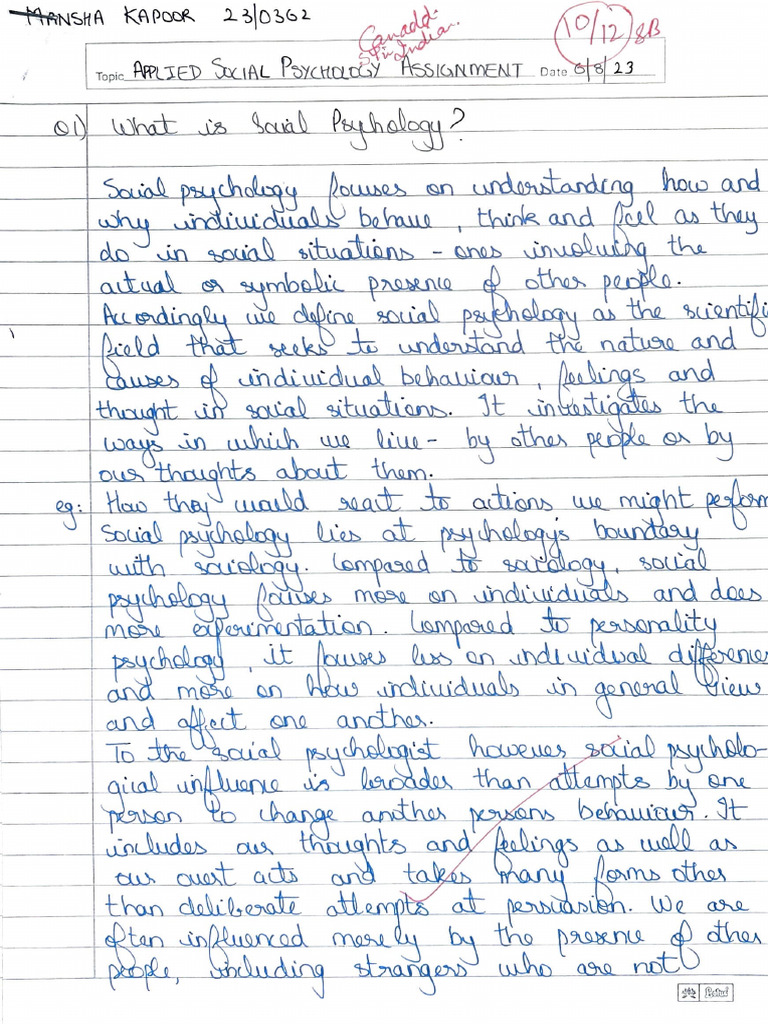 MANSHA KAPOOR 23/0362
10/12
Topic APPLIED SOCIAL PSYCHOLOGY ASSIGNMENT Date 8/8/23
Q1) What is Social Psychology?
Social psychology focuses on understanding how and
why individuals behave, think and feel as they
do in social situations - ones involving the
actual or symbolic presence of other people.
Accordingly we define social psychology as the scientifi
field that seeks to understand the nature and
causes of individual behaviour, feelings and
thought in social situations. It investigates the
ways in which we live - by other people or by
our thoughts about them.
eg: How they would react to actions we might perform
Social psychology lies at psychology's boundary
with sociology. Compared to sociology, social
psychology focuses more on individuals and does
more experimentation. Compared to personality
psychology, it focuses less on individual difference
and more on how individuals in general view
and affect one another.
To the social psychologist however social psycholo-
gical influence is broader than attempts by one
person to change another persons behaviour. It
includes our thoughts and feelings as well as
our overt acts and takes many forms other
than deliberate attempts at persuasion. We are
often influenced merely by the presence of other
people, including strangers who are not